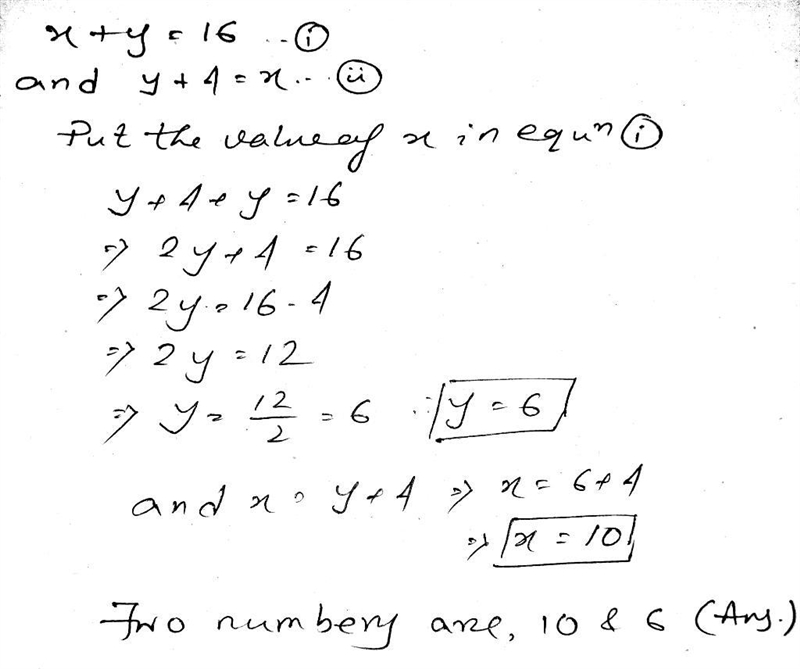 x + y = 16 ... (i)
and y + 4 = x ... (ii)
Put the value of x in equn (i)
y + 4 + y = 16
=> 2y + 4 = 16
=> 2y = 16 - 4
=> 2y = 12
=> y = 12/2 = 6 ∴ y = 6
and x = y + 4 => x = 6 + 4
=> x = 10
Two numbers are, 10 & 6 (Ans.)